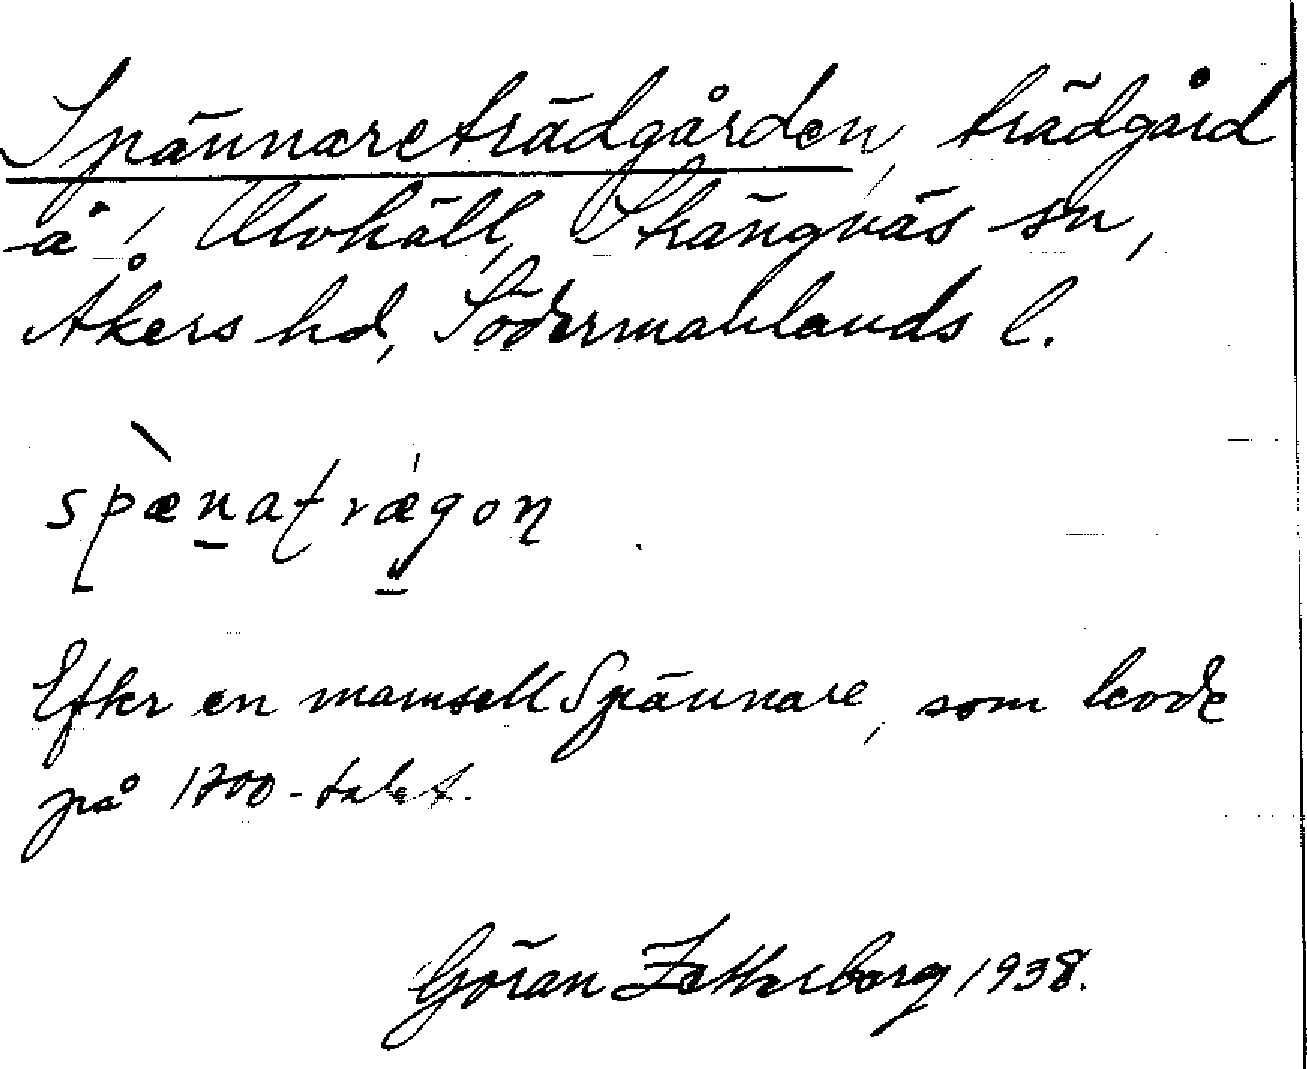 Spännareträdgården, trädgård
å Ulvhäll, Strängnäs sn,
Åkers hd, Södermanlands l.
spæ̀natrægon
Efter en mamsell Spännare, som levde
på 1700-talet.
Göran Zetterberg 1938.